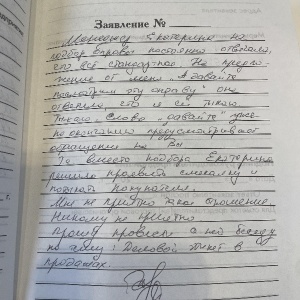 Заявление №
Менеджер Екатерина на
подбор оправы постоянно отвечала,
что всё стандартно. На предло-
жение от меня "давайте
посмотрим эту оправу" она
ответила, что я ей тыкаю
Тыкаю - слово "давайте" уже
по окончанию предусматривает
обращение на Вы
Т.е. вместо подбора Екатерина
решила проявить смекалку и
покупателя.
Мне не приятно такое отношение.
Никому не приятно.
Прошу провести с ней беседу
на тему: Деловой этикет в
продажах.